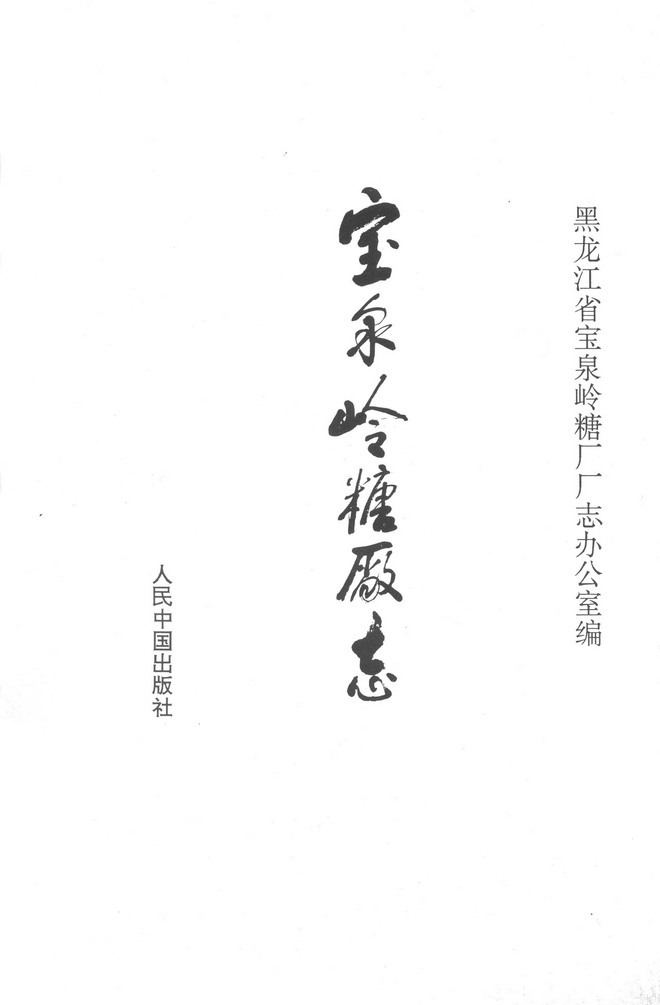 黑龙江省宝泉岭糖厂厂志办公室编
宝泉岭糖廠志
人民中国出版社